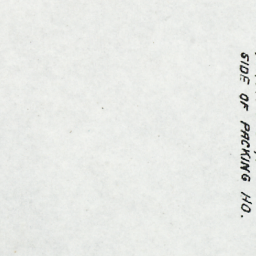 SIDE OF PACKING HO.